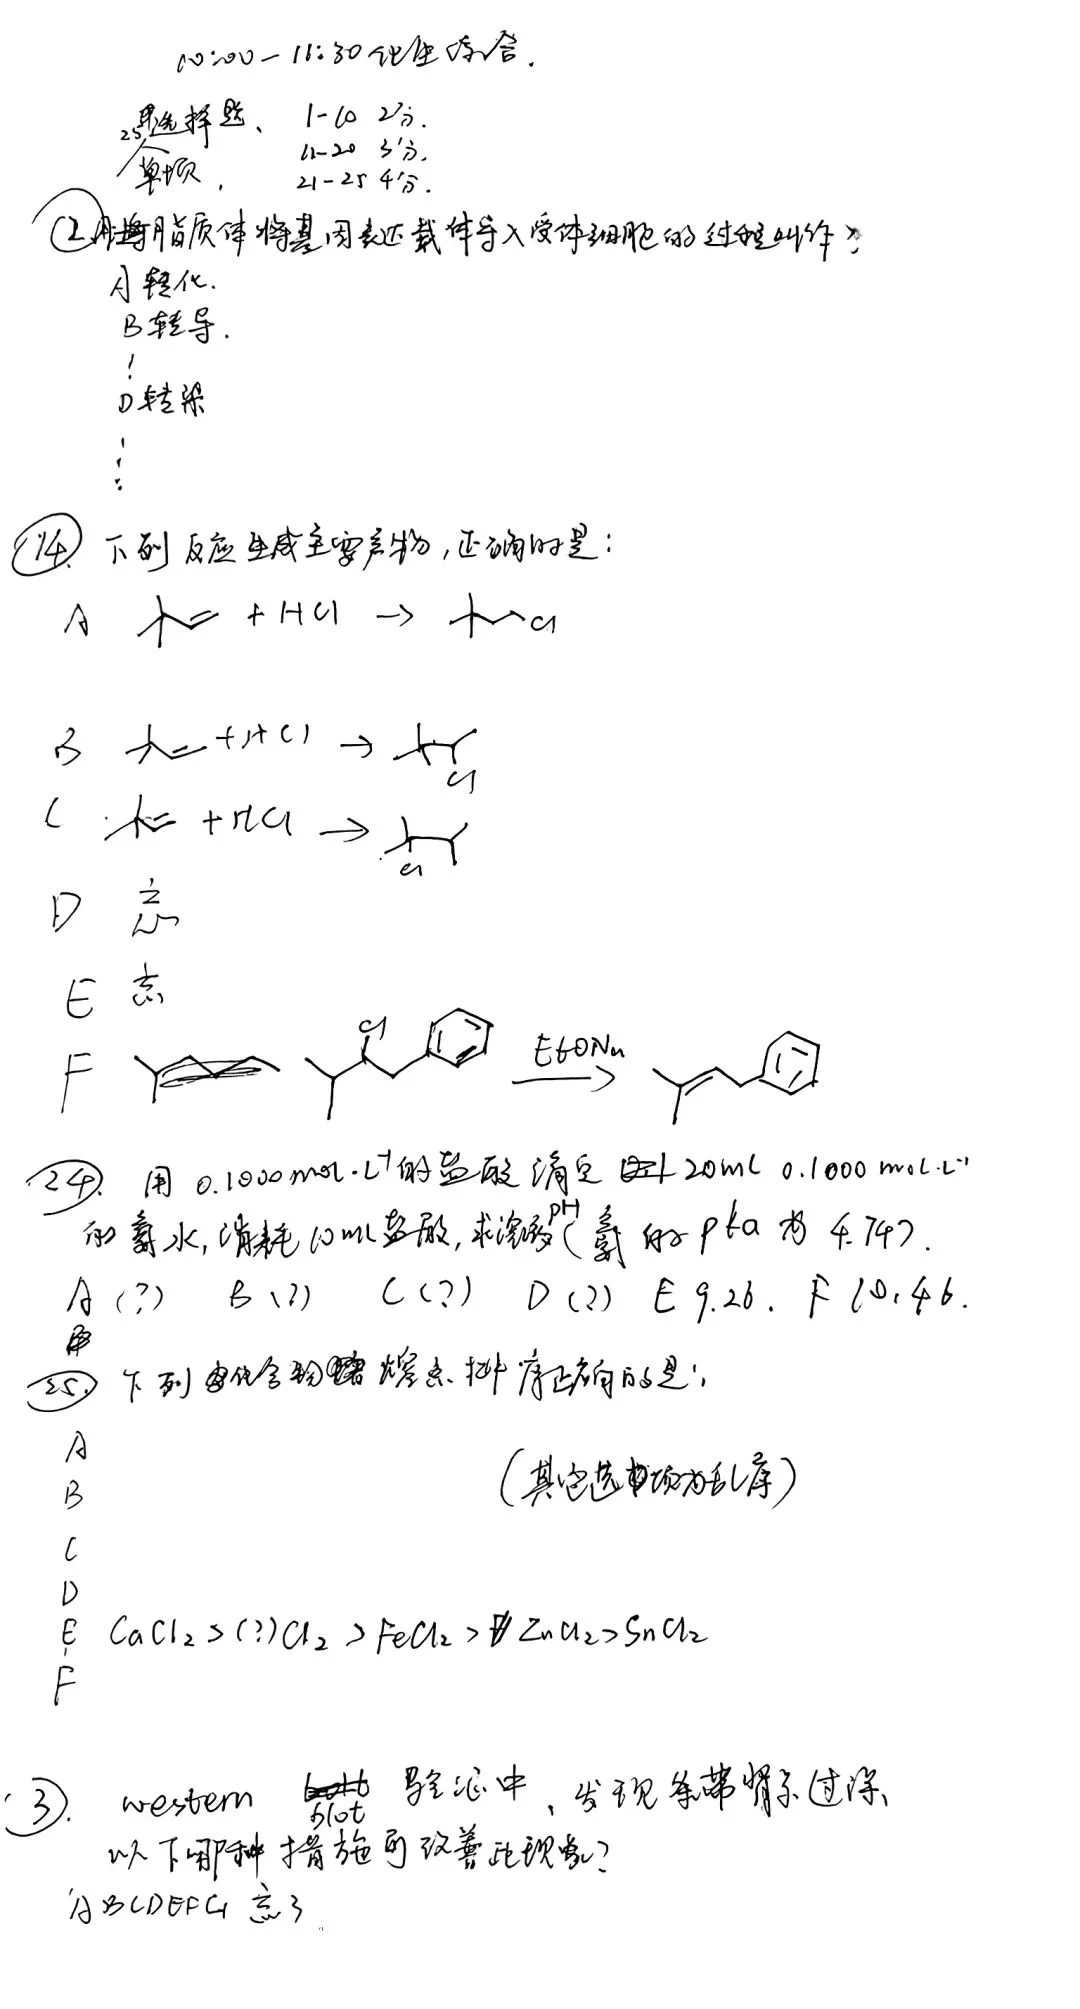 10:00-11:30 化生综合.
25个 选择题、 1-10 2分.
单项, 11-20 3分,
21-25 4分.
2 用脂质体将基因表达载体导入受体细胞的过程叫作?
A 转化.
B 转导.
D 转染
14. 下列反应生成主要产物,正确的是:
A + HCl → Cl
B + HCl → Cl
C + HCl → Cl
D 忘
E 忘
F Cl EtONa
24. 用 0.1000 mol·L⁻¹的盐酸滴定 20mL 0.1000 mol·L⁻¹
的氨水,消耗10mL盐酸,求溶液pH(氨的pka为4.74).
A(?) B(?) C(?) D(?) E 9.26. F 10.46.
25. 下列化合物熔点排序正确的是:
A
(其它选项为乱序)
B
C
D
E CaCl₂>(?)Cl₂>FeCl₂>ZnCl₂>SnCl₂
F
3. western blot 验证中,发现条带背景过深,
以下哪种措施可改善此现象?
ABCDEFG 忘了